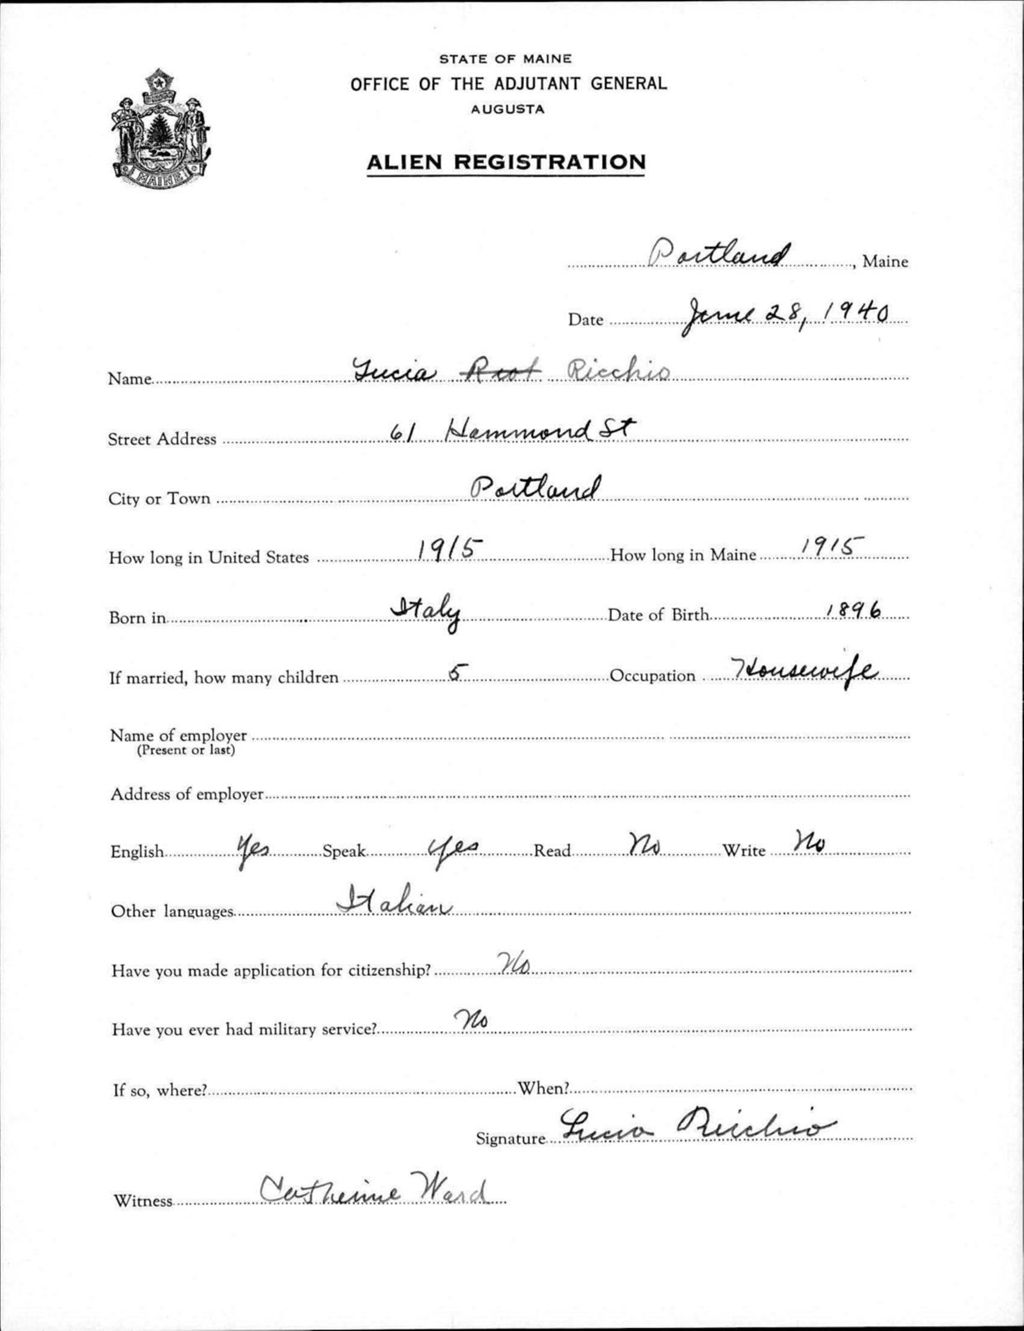 STATE OF MAINE
OFFICE OF THE ADJUTANT GENERAL
AUGUSTA
ALIEN REGISTRATION
MAINE
Portland, Maine
Date June 28, 1940
Name Lucia Ricchio
Street Address 61 Hammond St
City or Town Portland
How long in United States 1915 How long in Maine 1915
Born in Italy Date of Birth 1896
If married, how many children 5 Occupation Housewife
Name of employer
(Present or last)
Address of employer
English Yes Speak Yes Read No Write No
Other languages Italian
Have you made application for citizenship? No
Have you ever had military service? No
If so, where? When?
Signature Lucia Ricchio
Witness Catherine Ward